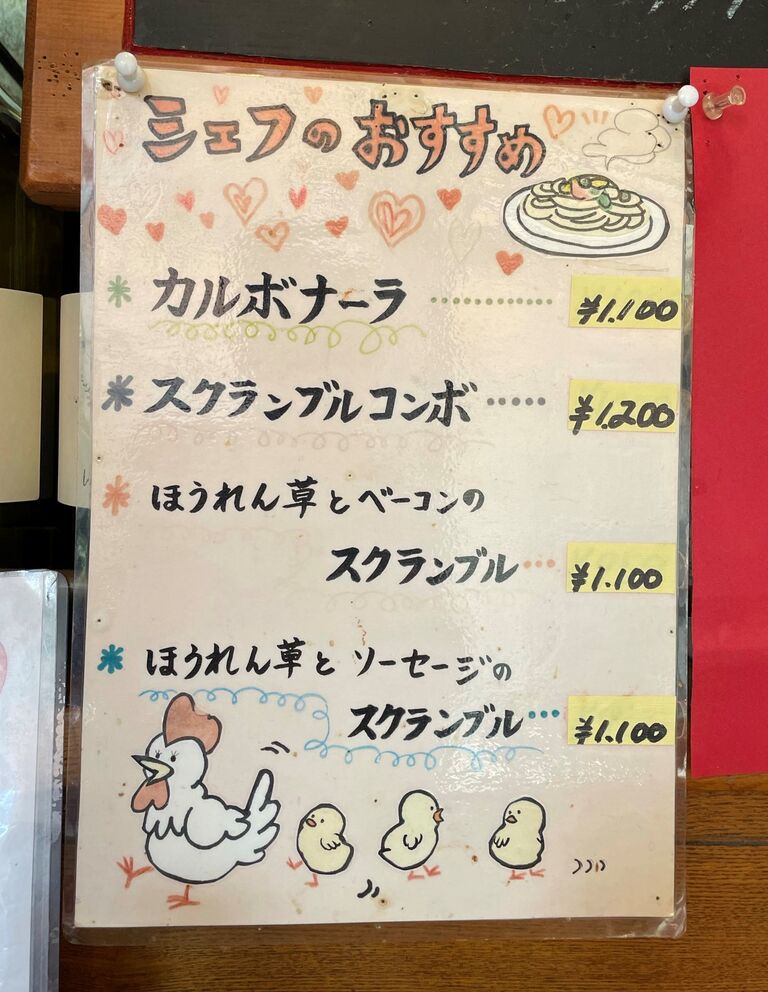 シェフのおすすめ
* カルボナーラ ………… ¥1.100
* スクランブルコンボ …… ¥1.200
* ほうれん草とベーコンの
スクランブル … ¥1.100
* ほうれん草とソーセージの
スクランブル … ¥1.100